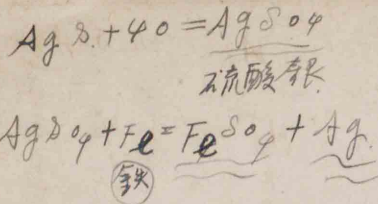 AgS.+4O=AgSO4
硫酸銀.
AgSO4+Fe=FeSO4+Ag.
鉄